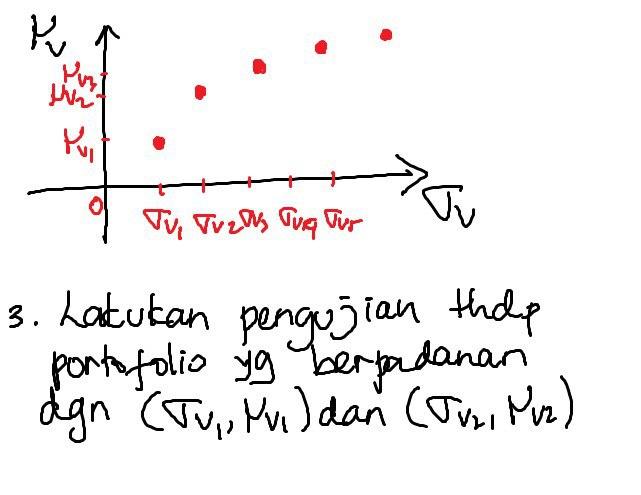 μv
μv3
μv2
μv1
0
σv1 σv2 σv3 σv4 σv5
σv
3. Lakukan pengujian thdp
portofolio yg berpadanan
dgn (σv1, μv1) dan (σv2, μv2)